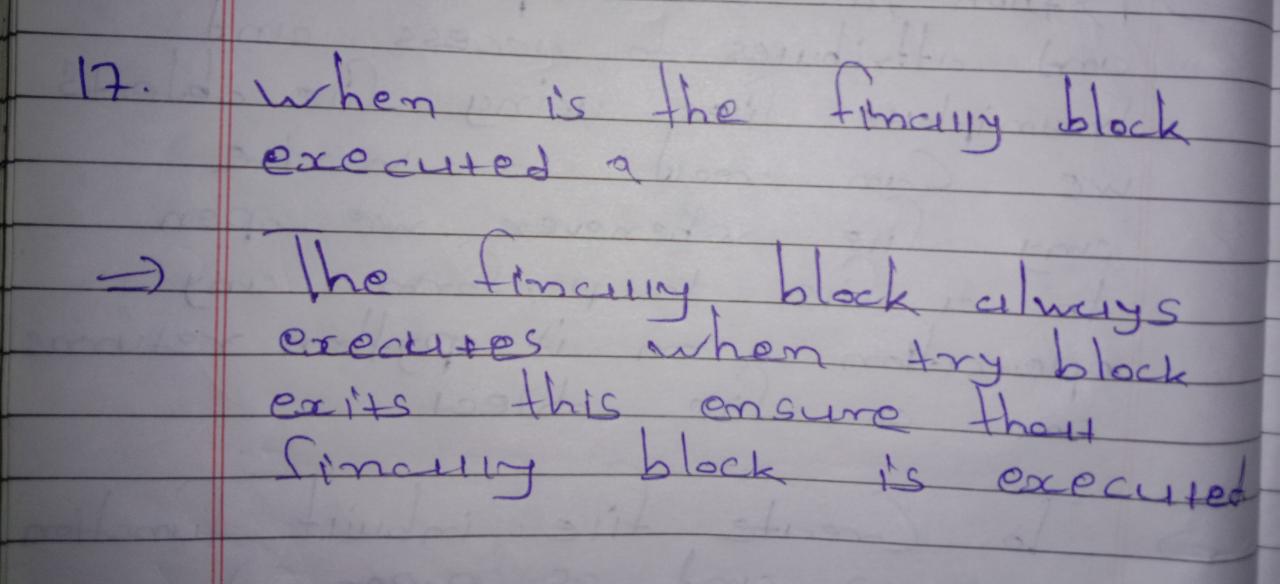 17. When is the finally block
executed ?
⇒ The finally block always
executes when try block
exits this ensure that
finally block is executed